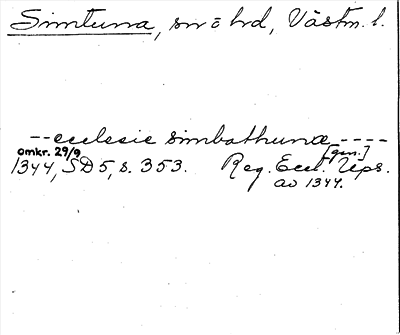 Simtuna, sn o hd, Västm. l.
-- ecclesie simbathunæ ----
omkr. 29/9 [gen.]
1344, SD 5, s. 353. Reg. Eccl. Ups.
av 1344.